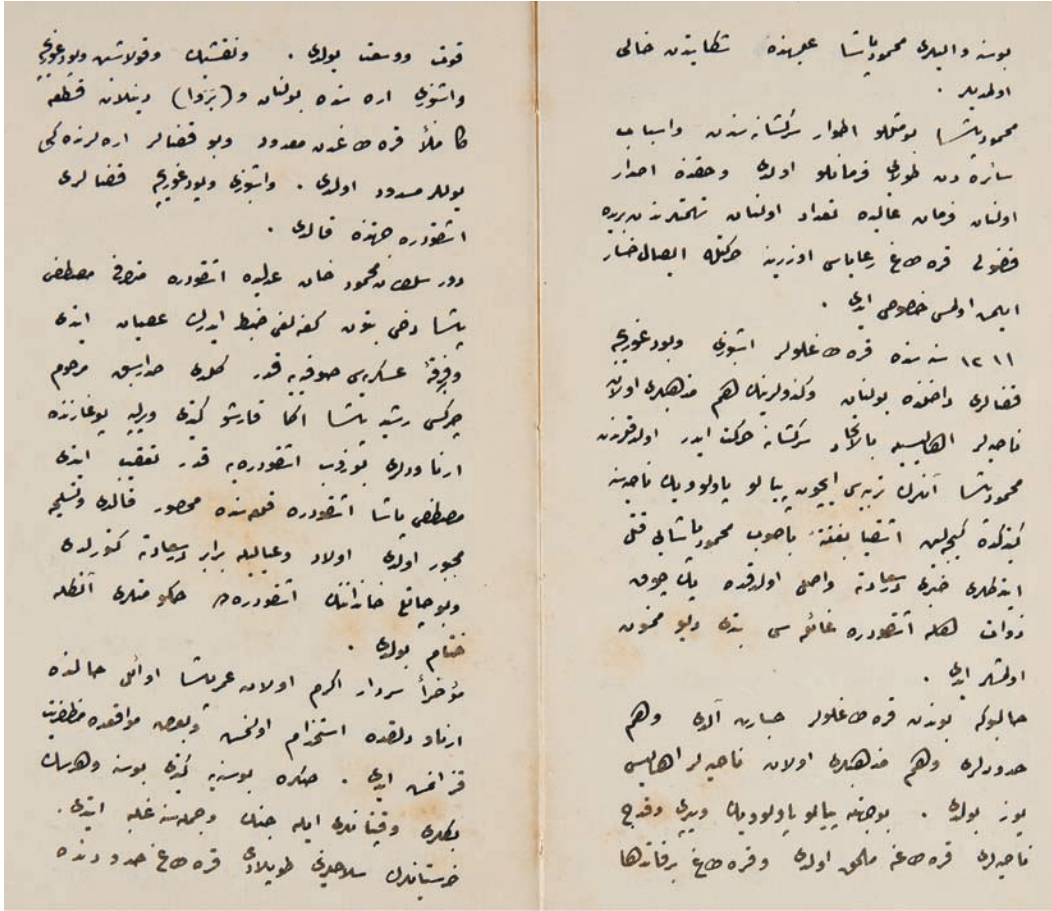 بوسنه والیلری محمود پاشا علیهنده شکایتدن خالی
اولمدیلر .
محمود پاشا بو مثللو اطوار سرکشانه سندن واسباب
سائره دن طولایی فرمانلو اولدی وحقنده اصدار
اولنان فرمان عالیده تعداد اولنان تهمتلرندن بریده
فضولی قره طاغ رعایاسی اوزرینه حرکتله ایصال خسار
ایلمش اولمسی خصوصی ایدی .
١٢١١ سنه سنده قره طاغلولر اشپوزی وپودغوریچه
قضالری داخلنده بولنان وکندولرینك هم مذهبلری اولان
ناحیه لر اهالیسیله بالاتحاد سرکشانه حرکت ایدر اولدقلرندن
محمود پاشا آنلرك تربیه سی ایچون پیپا لو پاولوویك ناحیه سنه
کیتدکده کیجه لین اشقیا بغتةً باصوب محمود پاشایی قتل
ایتدکلری خبری درسعادته واصل اولدقده پك چوق
ذوات هله اشقودره غائله سی بتدی دیو ممنون
اولمشلر ایدی .
حالبوکه بوندن قره طاغلولر جسارت آلدی وهم
حدودلری وهم مذهبلری اولان ناحیه لر اهالیسی
یوز بولدی . بو جهتله پیپا لو پاولوویك
ناحیه لری قره طاغه ملحق اولدی وقره طاغ بر قاتدها
قوت ووسعت بولدی . ونقشیك وقولاشین وپودغوریچه
واشپوزی اره سنده بولنان و (بردا) دینلان قطعه
کاملاً قره طاغدن معدود وبو قضالر اره لرنده کی
یوللر مسدود اولدی . واشپوزی وپودغوریچه قضالری
اشقودره جهتنده قالدی .
دور سلطان محمود خان عدلیده اشقودره متصرفی مصطفی
پاشا دخی بتون کغه لغی ضبط ایدرك عصیان ایتدی
وفرقهٔ عسکریه سی صوفیه یه قدر کلدی صدر اسبق مرحوم
چرکس رشید پاشا اکا قارشو کیتدی پرلپه بوغازنده
ارناودلری بوزوب اشقودره یه قدر تعقیب ایتدی
مصطفی پاشا اشقودره قلعه سنده محصور قالدی وتسلیمه
مجبور اولدی اولاد وعیالیله برابر درسعادته کتورلدی
وبوجاتلی خاندانك اشقودره ده حکومتلری آنکله
ختام بولدی .
مؤخراً سردار اکرم اولان عمر پاشا اوائل حالنده
ارناودلقده استخدام اولنمش وبعض مواقعده مظفریت
قزانمش ایدی . صکره بوسنه یه کیتدی بوسنه وهرسك
بکلری وقپتانلری ایله جنك وجمله سنه غلبه ایتدی .
خرستیانلرك سلاحلرینی طوپلادی قره طاغ حدودنده